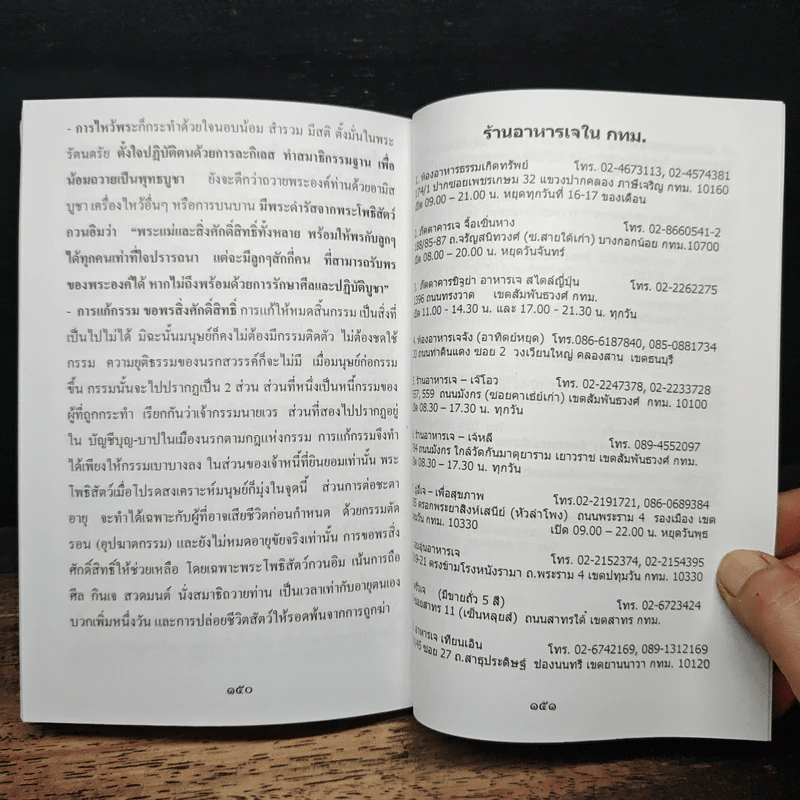 - การไหว้พระก็กระทำด้วยใจนอบน้อม สำรวม มีสติ ตั้งมั่นในพระ
รัตนตรัย ตั้งใจปฏิบัติตนด้วยการละกิเลส ทำสมาธิกรรมฐาน เพื่อ
น้อมถวายเป็นพุทธบูชา ยังจะดีกว่าถวายพระองค์ท่านด้วยอามิส
บูชา เครื่องไหว้อื่นๆ หรือการบนบาน มีพระดำรัสจากพระโพธิสัตว์
กวนอิมว่า "พระแม่และสิ่งศักดิ์สิทธิ์ทั้งหลาย พร้อมให้พรกับลูกๆ
ได้ทุกคนเท่าที่ใจปรารถนา แต่จะมีลูกๆสักกี่คน ที่สามารถรับพร
ของพระองค์ได้ หากไม่ถึงพร้อมด้วยการรักษาศีลและปฏิบัติบูชา"
- การแก้กรรม ขอพรสิ่งศักดิ์สิทธิ์ การแก้ให้หมดสิ้นกรรม เป็นสิ่งที่
เป็นไปไม่ได้ มิฉะนั้นมนุษย์ก็คงไม่ต้องมีกรรมติดตัว ไม่ต้องชดใช้
กรรม ความยุติธรรมของนรกสวรรค์ก็จะไม่มี เมื่อมนุษย์ก่อกรรม
ขึ้น กรรมนั้นจะไปปรากฏเป็น 2 ส่วน ส่วนที่หนึ่งเป็นหนี้กรรมของ
ผู้ที่ถูกกระทำ เรียกกันว่าเจ้ากรรมนายเวร ส่วนที่สองไปปรากฏอยู่
ใน บัญชีบุญ-บาปในเมืองนรกตามกฎแห่งกรรม การแก้กรรมจึงทำ
ได้เพียงให้กรรมเบาบางลง ในส่วนของเจ้าหนี้ที่ยินยอมเท่านั้น พระ
โพธิสัตว์เมื่อโปรดสงเคราะห์มนุษย์ก็มุ่งในจุดนี้ ส่วนการต่อชะตา
อายุ จะทำได้เฉพาะกับผู้ที่อาจเสียชีวิตก่อนกำหนด ด้วยกรรมตัด
รอน (อุปฆาตกรรม) และยังไม่หมดอายุขัยจริงเท่านั้น การขอพรสิ่ง
ศักดิ์สิทธิ์ให้ช่วยเหลือ โดยเฉพาะพระโพธิสัตว์กวนอิม เน้นการถือ
ศีล กินเจ สวดมนต์ นั่งสมาธิถวายท่าน เป็นเวลาเท่ากับอายุตนเอง
บวกเพิ่มหนึ่งวัน และการปล่อยชีวิตสัตว์ให้รอดพ้นจากการถูกฆ่า
๑๕๐
ร้านอาหารเจใน กทม.
1. ห้องอาหารธรรมเกิดทรัพย์ โทร. 02-4673113, 02-4574381
74/1 ปากซอยเพชรเกษม 32 แขวงปากคลอง ภาษีเจริญ กทม. 10160
เปิด 09.00 – 21.00 น. หยุดทุกวันที่ 16-17 ของเดือน
2. ภัตตาคารเจ จื้อเซิ่นหาง โทร. 02-8660541-2
88/85-87 ถ.จรัญสนิทวงศ์ (ข.สายใต้เก่า) บางกอกน้อย กทม.10700
เปิด 08.00 – 20.00 น. หยุดวันจันทร์
3. ภัตตาคารชิจูย่า อาหารเจ สไตล์ญี่ปุ่น โทร. 02-2262275
1396 ถนนทรงวาด เขตสัมพันธวงศ์ กทม.
เปิด 11.00 - 14.30 น. และ 17.00 - 21.30 น. ทุกวัน
4. ห้องอาหารเจจัง (อาทิตย์หยุด) โทร.086-6187840, 085-0881734
ถนนท่าดินแดง ซอย 2 วงเวียนใหญ่ คลองสาน เขตธนบุรี
5. ร้านอาหารเจ – เจ้โอว โทร. 02-2247378, 02-2233728
57, 559 ถนนมังกร (ซอยคาเธ่ย์เก่า) เขตสัมพันธวงศ์ กทม. 10100
เปิด 08.30 – 17.30 น. ทุกวัน
ร้านอาหารเจ – เจ้หลี โทร. 089-4552097
ถนนมังกร ใกล้วัดกันมาตุยาราม เยาวราช เขตสัมพันธวงศ์ กทม.
เปิด 08.30 – 17.30 น. ทุกวัน
– เพื่อสุขภาพ โทร.02-2191721, 086-0689384
ตรอกพระยาสิงห์เสนีย์ (หัวลำโพง) ถนนพระราม 4 รองเมือง เขต
กทม. 10330 เปิด 09.00 – 22.00 น. หยุดวันพุธ
อาหารเจ โทร. 02-2152374, 02-2154395
19-21 ตรงข้ามโรงหนังรามา ถ.พระราม 4 เขตปทุมวัน กทม. 10330
(มีขายถั่ว 5 สี) โทร. 02-6723424
สาทร 11 (เซ็นหลุยส์) ถนนสาทรใต้ เขตสาทร กทม.
อาหารเจ เทียนเอิน โทร. 02-6742169, 089-1312169
45 ซอย 27 ถ.สาธุประดิษฐ์ ช่องนนทรี เขตยานนาวา กทม. 10120
๑๕๑